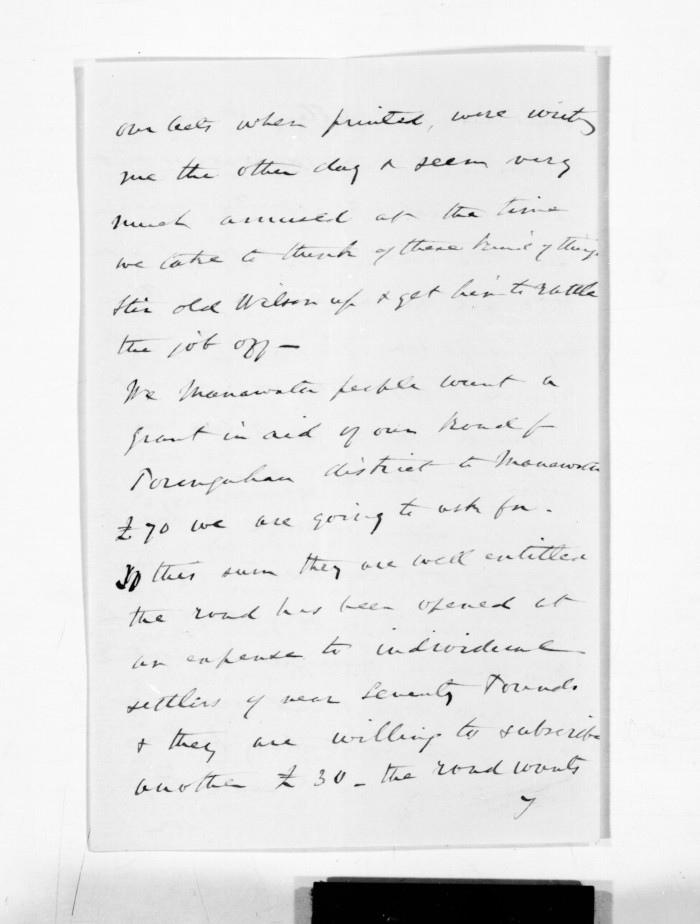 our Acts when printed, were writing
me the other day & seem very
much amused at the time
we take to think of these kind of things
Stir old Wilson up & get him to rattle
the job off —
We Manawatu people want a
grant in aid of our Road fr
Porangahau district to Manawatu
£70 we are going to ask for.
To this sum they are well entitled
the road has been opened at
an expense to individual
settlers of near Seventy Pounds
& they are willing to subscribe
another £30 – the road wants